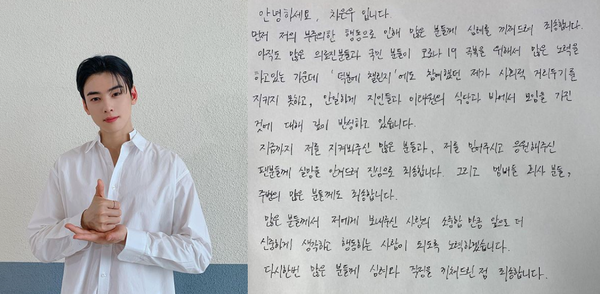 안녕하세요, 차은우 입니다.
먼저 저의 부주의한 행동으로 인해 많은 분들께 심려를 끼쳐드려 죄송합니다.
아직도 많은 의료진분들과 국민 분들이 코로나 19 극복을 위해서 많은 노력을
하고있는 가운데 '덕분에 챌린지'에도 참여했던 제가 사회적 거리두기를
지키지 못하고, 안일하게 지인들과 이태원의 식당과 바에서 모임을 가진
것에 대해 깊이 반성하고 있습니다.
지금까지 저를 지켜봐주신 많은 분들과, 저를 믿어주시고 응원해주신
팬분들께 실망을 안겨드려 진심으로 죄송합니다. 그리고 멤버들, 회사 분들,
주변의 많은 분들께도 죄송합니다.
많은 분들께서 저에게 보내주신 사랑의 소중함 만큼 앞으로 더
신중하게 생각하고 행동하는 사람이 되도록 노력하겠습니다.
다시한번 많은 분들께 심려와 걱정을 끼쳐드린 점 죄송합니다.